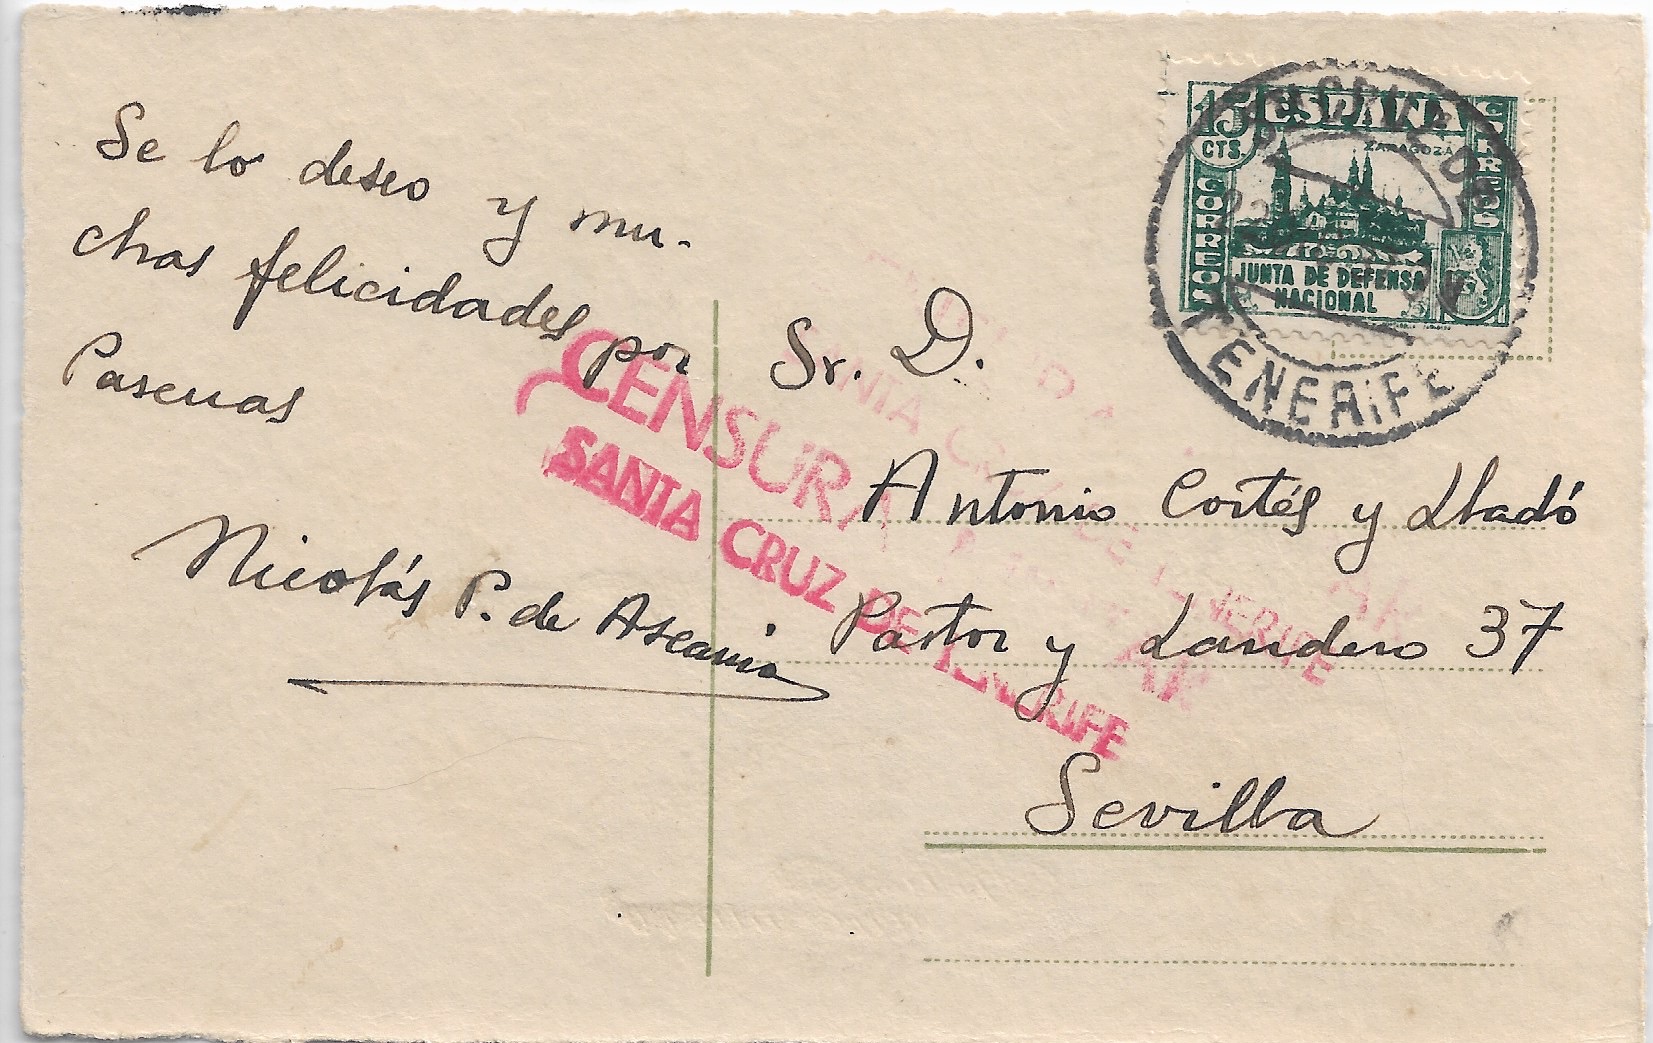 Se lo deseo y mu-
chas felicidades por
Pascuas
Nicolás P. de Ascanio
15
CTS.
ESPAÑA
CORREOS
CORREOS
ZARAGOZA
JUNTA DE DEFENSA
NACIONAL
TENERIFE
CENSURA
SANTA CRUZ DE TENERIFE
SANTA CRUZ DE TENERIFE
Sr. D.
Antonio Cortés y Lladó
Pastor y Landero 37
Sevilla